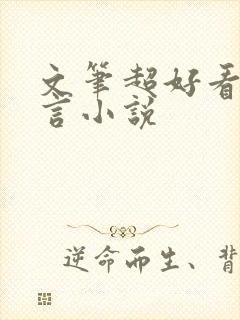 文筆超好看
言小說
逆命而生、背